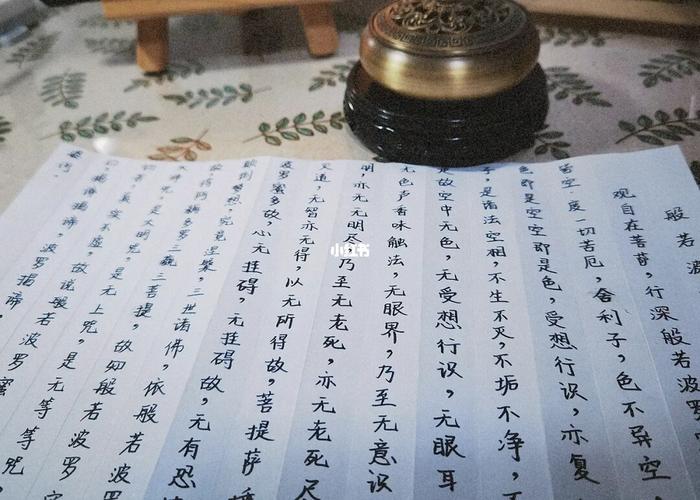 般若波
观自在菩萨，行深般若波罗
皆空 度一切苦厄，舍利子，色不异空，
色即是空空即是色，受想行识，亦复
子，是诸法空相，不生不灭，不垢不净，
是故空中无色，无受想行识，无眼耳
无色声香味触法，无眼界，乃至无意识
明，亦无无明尽，乃至无老死，亦无老死尽
灭道，无智亦无得，以无所得故，菩提萨
波罗蜜多故，心无挂碍，无挂碍故，无有恐
颠倒梦想，究竟涅槃，三世诸佛，依般若波罗
故得阿耨多罗三藐三菩提，故知般若波罗
大神咒，是大明咒，是无上咒，是无等等咒
切苦，真实不虚，故说般若波罗蜜
曰：揭谛揭谛，波罗揭谛，
婆诃。
小红书